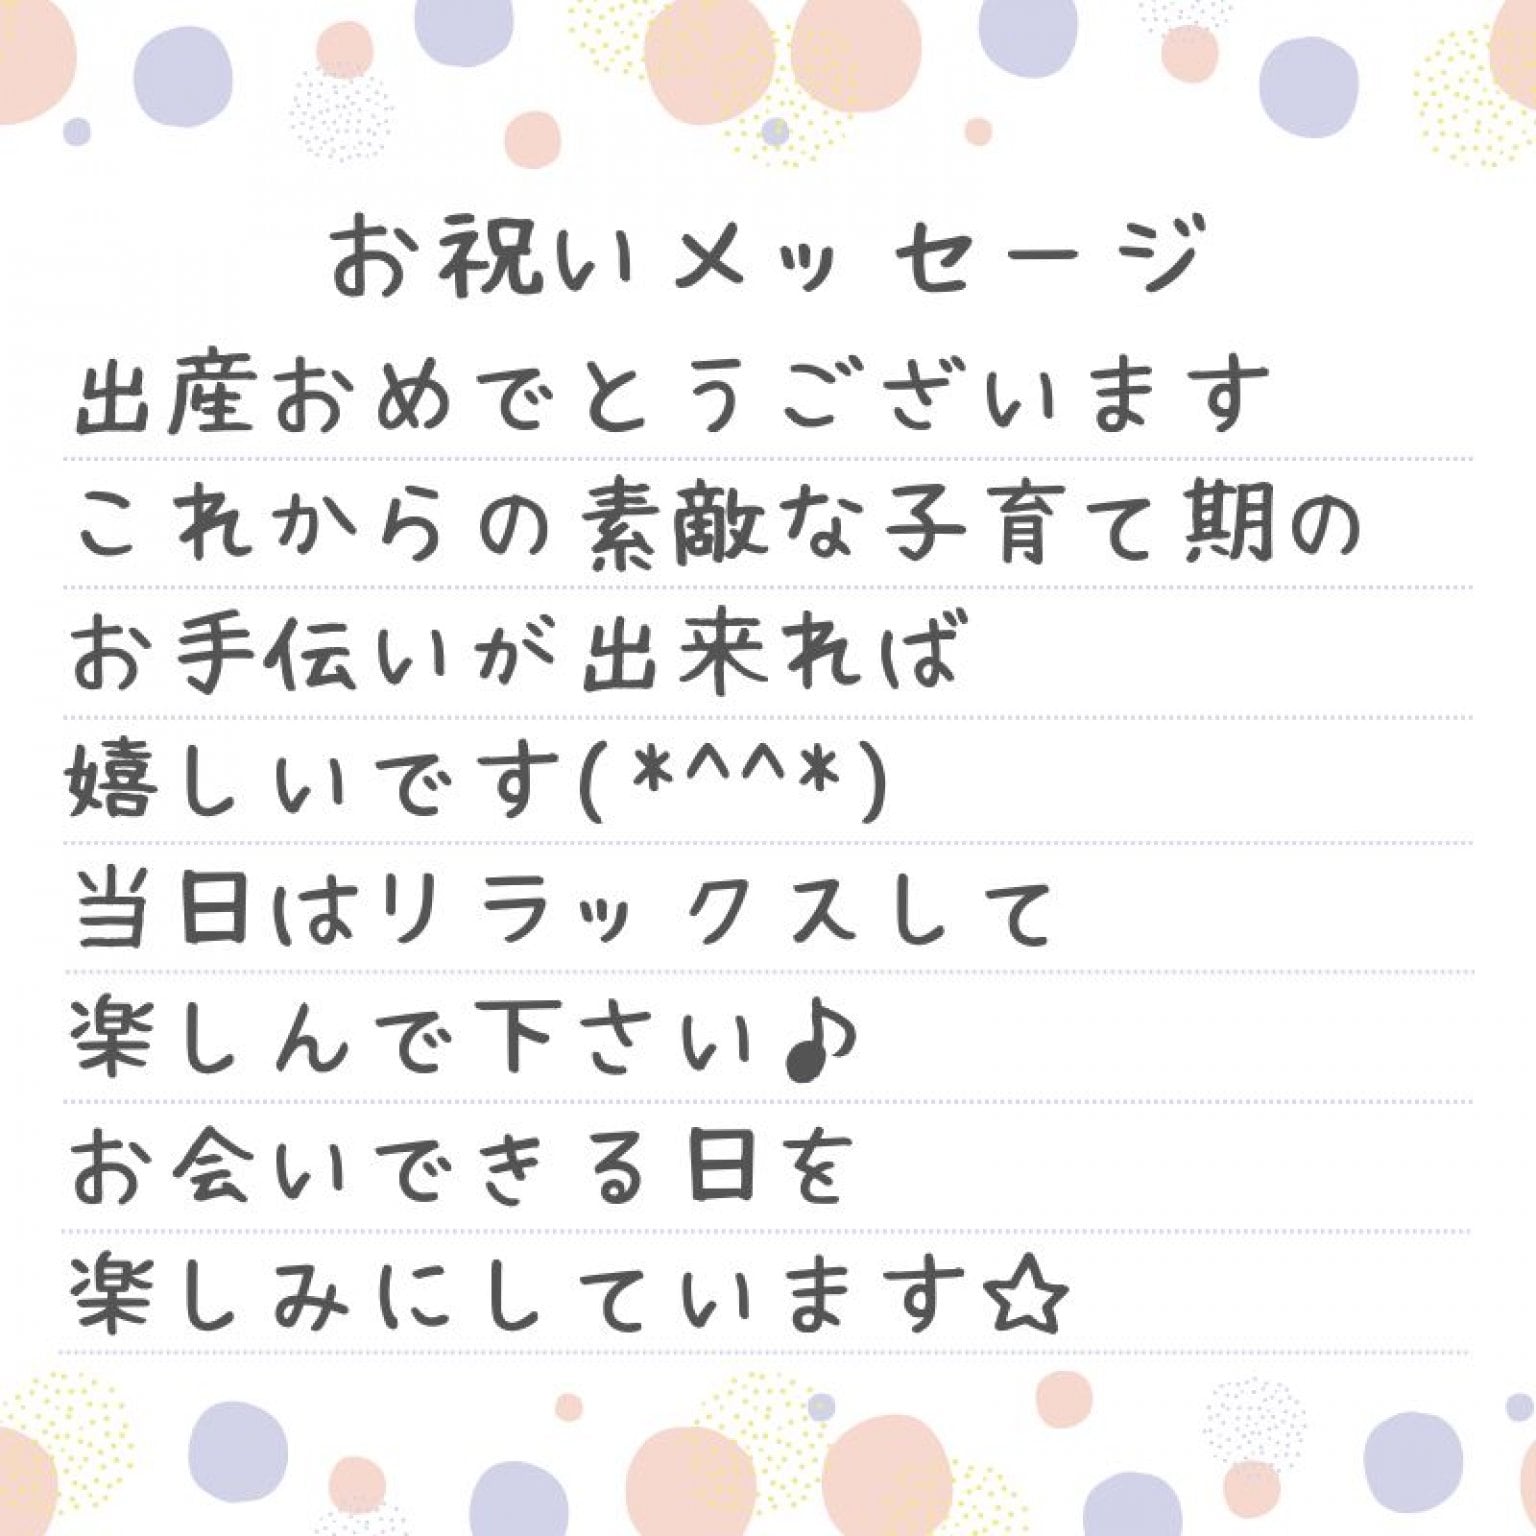 お祝いメッセージ
出産おめでとうございます
これからの素敵な子育て期の
お手伝いが出来れば
嬉しいです(*^^*)
当日はリラックスして
楽しんで下さい♪
お会いできる日を
楽しみにしています☆